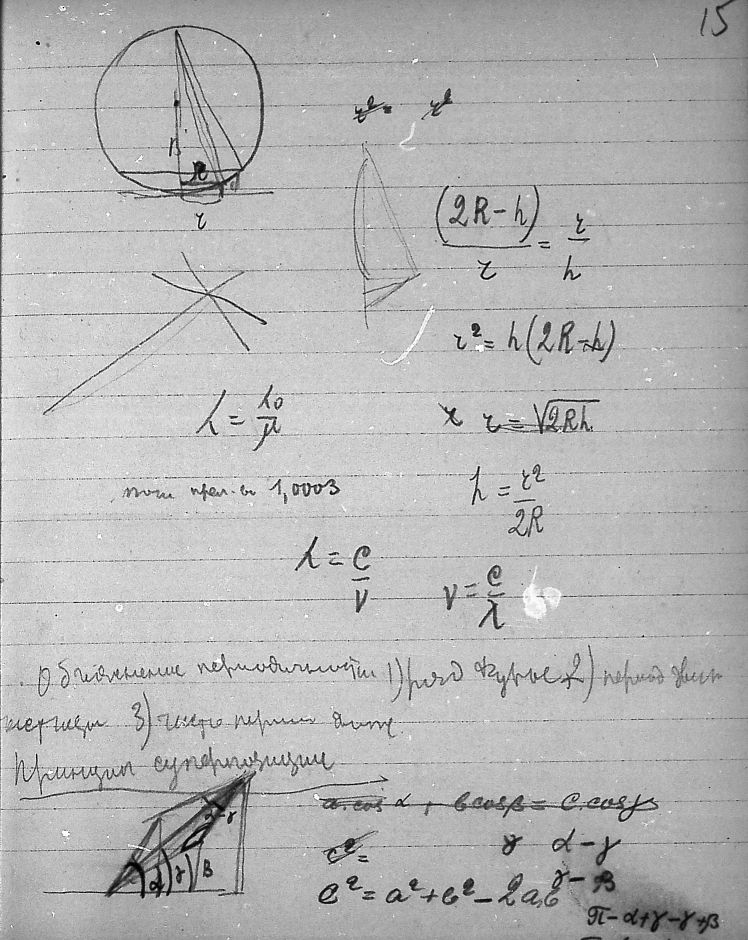 15
B
R
d
r
r² = r²
(2R-h)/r = r/h
r² = h(2R-h)
λ = λ₀/μ
x r = √2Rh
1,0003
h = r²/2R
λ = c/ν
ν = c/λ
Объяснение периодичности 1) ряд 2) период
3) чисто
Принцип суперпозиции
a cos α + b cos β = c cos γ
α-γ
α γ β
c² =
γ α-γ
γ-β
c² = a² + b² - 2ab
π-α+γ-γ+β